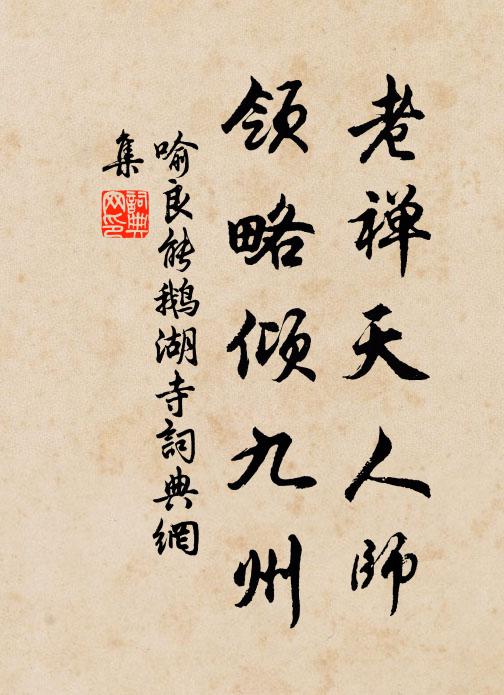 老禅天人师
领略倾九州
喻良能鵝湖寺詞典網
集
詞典
网印